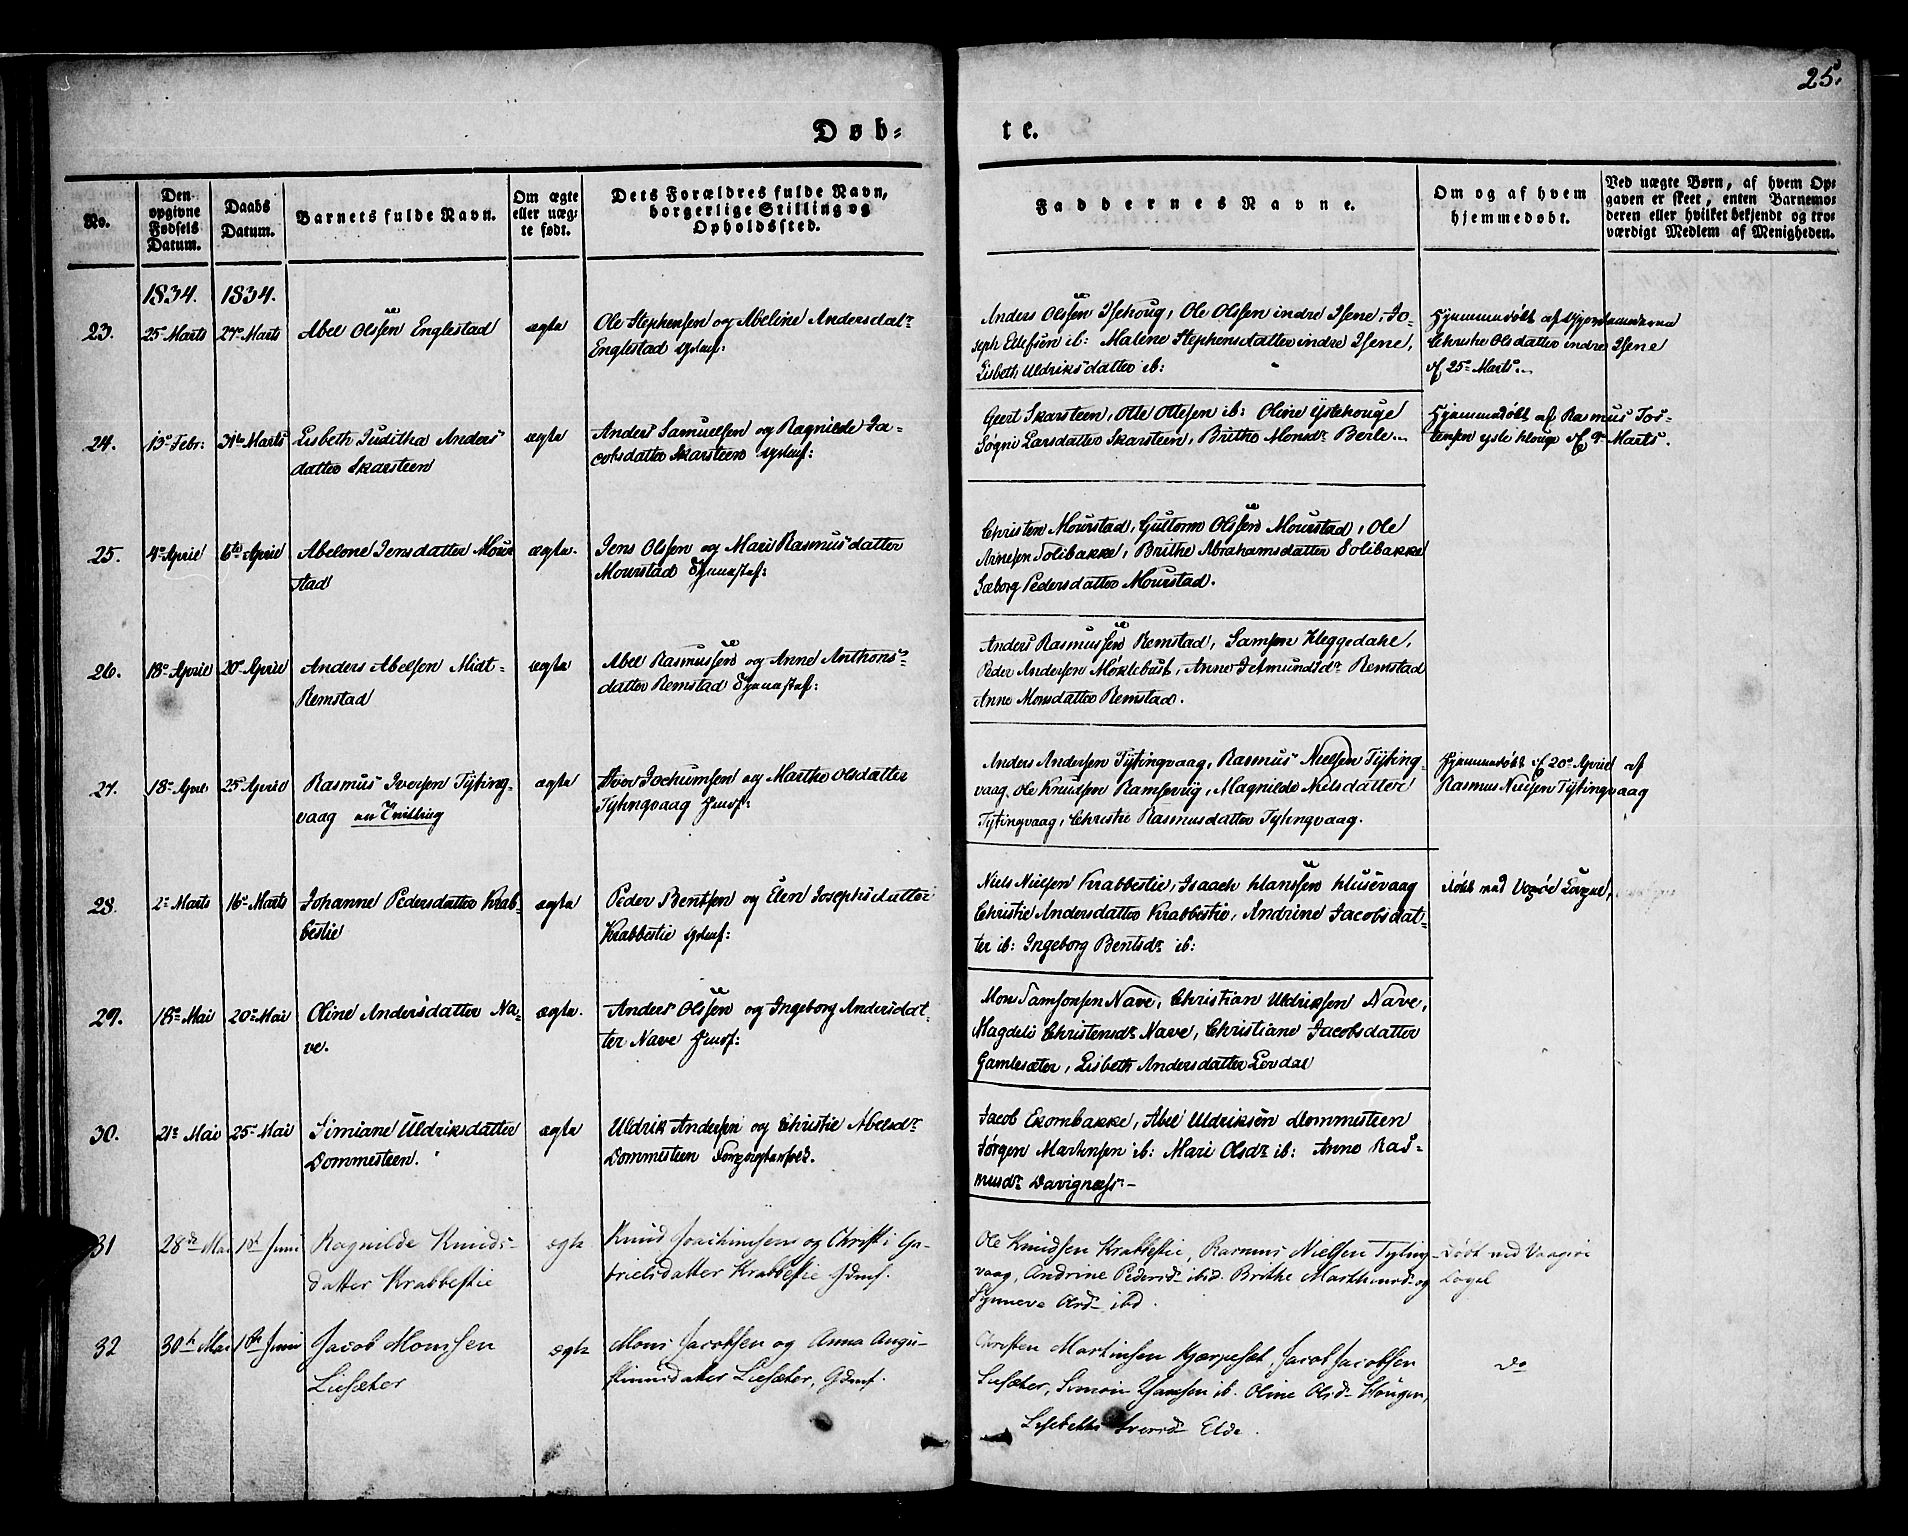 25.
Døb-
te.
No.
Den
opgivne
Fødsels
Datum.
Daabs
Datum.
Barnets fulde Navn.
Om ægte
eller uæg-
te født.
Dets Forældres fulde Navn,
borgerlige Stilling og
Opholdssted.
Fadbernes Navne.
Om og af hvem
hjemmedøbt.
Ved uægte Børn, af hvem Op-
gaven er skeet, enten Barnemo-
deren eller hvilket bekjendt og tro-
værdigt Medlem af Menigheden.
1834. 1834.
23. 25de Marts 27de Marts Abel Olssen Englestad ægte
Ole Stephensen og Abeline Andersdatr
Englestad
Anders Olssen Isehoug, Ole Olssen indre Isene, Jo-
seph Edefsen ib: Malene Stephensdatter indre Isene,
Lisbeth Uldriksdatter ib:
Hjemmedøbt af
Christie Olsdatter indre Isene
25de Marts.
24. 13de Febr: 31te Marts Lisbeth Juditha Anders
datter Skarsteen
ægte
Anders Samuelsen og Ragnilde Ja-
cobsdatter Skarsteen
Geert Skarsteen, Otte Ottesen ib: Oline ystehouge
Søgni Larsdatter Skarsteen, Brithe Monsdr Berle.
Hjemmedøbt af Rasmus Tor-
Marts.
25. 4de April 6te April Abelone Jensdatter Mour
stad
ægte.
Jens Olssen og Mari Rasmusdatter
Mourstad
Christen Mourstad, Guttorm Olssen Mourstad, Ole
Arnesen Solibakke, Brithe Abrahamsdatter Solibakke
Sæborg Pedersdatter Mourstad.
26. 18de April 20de April Anders Abelsen Midt-
Remstad
ægte
Abel Rasmussen og Anne Anthons-
datter Remstad
Anders Rasmussen Remstad, Samson Kleggedahl,
Peder Andersen Møklebust, Anne Remstad
Anne Monsdatter Remstad.
27. 18de April 25de April Rasmus Iversen Tyting-
vaag en Tvilling
ægte
Iver Jochumsen og Marthe Olsdatter
Tytingvaag
Anders Andersen Tytingvaag, Rasmus Nielsen Tyting-
vaag, Ole Knudsen Ramsevig, Magnilde Nielsdatter
Tytingvaag, Christie Rasmusdatter Tytingvaag.
Hjemmedøbt 20de April af
Rasmus Nielsen Tytingvaag
28. 2de Marts 16de Marts Johanne Pedersdatter Krab-
bestie
ægte
Peder Bentsen og Elen Josephsdatter
Krabbestie
Niels Nielsen Krabbestie, Isaach Hanssen Husevaag
Christie Andersdatter Krabbestie, Andrine Jacobsdat-
ter ib: Ingeborg Bentsdr ib:
døbt ved Vogsøe
29. 18de Mai 20de Mai Oline Andersdatter Na-
ve.
ægte.
Anders Olssen og Ingeborg Andersdat-
ter Nave
Mons Samsonsen Nave, Christian Uldriksen Nave,
Magdeli Christensdr Nave, Christiane Jacobsdatter
Gamlesæter, Lisbeth Andersdatter Levdal
30. 21de Mai 25de Mai Simiane Uldriksdatter
Dommesteen.
ægte
Uldrik Andersen og Christie Abelsdr
Dommesteen
Jacob Ekornbakke, Abel Uldriksen Dommesteen
Jørgen Martinsen ib: Mari Olsdr ib: Anne Ras-
musdr
31 28de Mai 1st Juni Ragnilde Knuds-
datter Krabbestie
ægte
Knud Joachimsen og Christi Ga-
brielsdatter Krabbestie
Ole Knudsen Krabbestie, Rasmus Nielsen Tyting
vaag, Andrine Pedersd- ibid. Brithe og
Synneve Olsd- ibd.
Døbt ved Vaagsøe
32 30te Mai 1ste Juni Jacob Monssen
Liesæter
ægte
Mons Jacobsen og Anna Augu-
stinusdatter Liesæter,
Christen Martinsen Kjærpesæt, Jacob Jacobsen
Liesæter, Simon ib. Oline Olsd- Hougen,
Lisebeth Iversd- Elde.
do